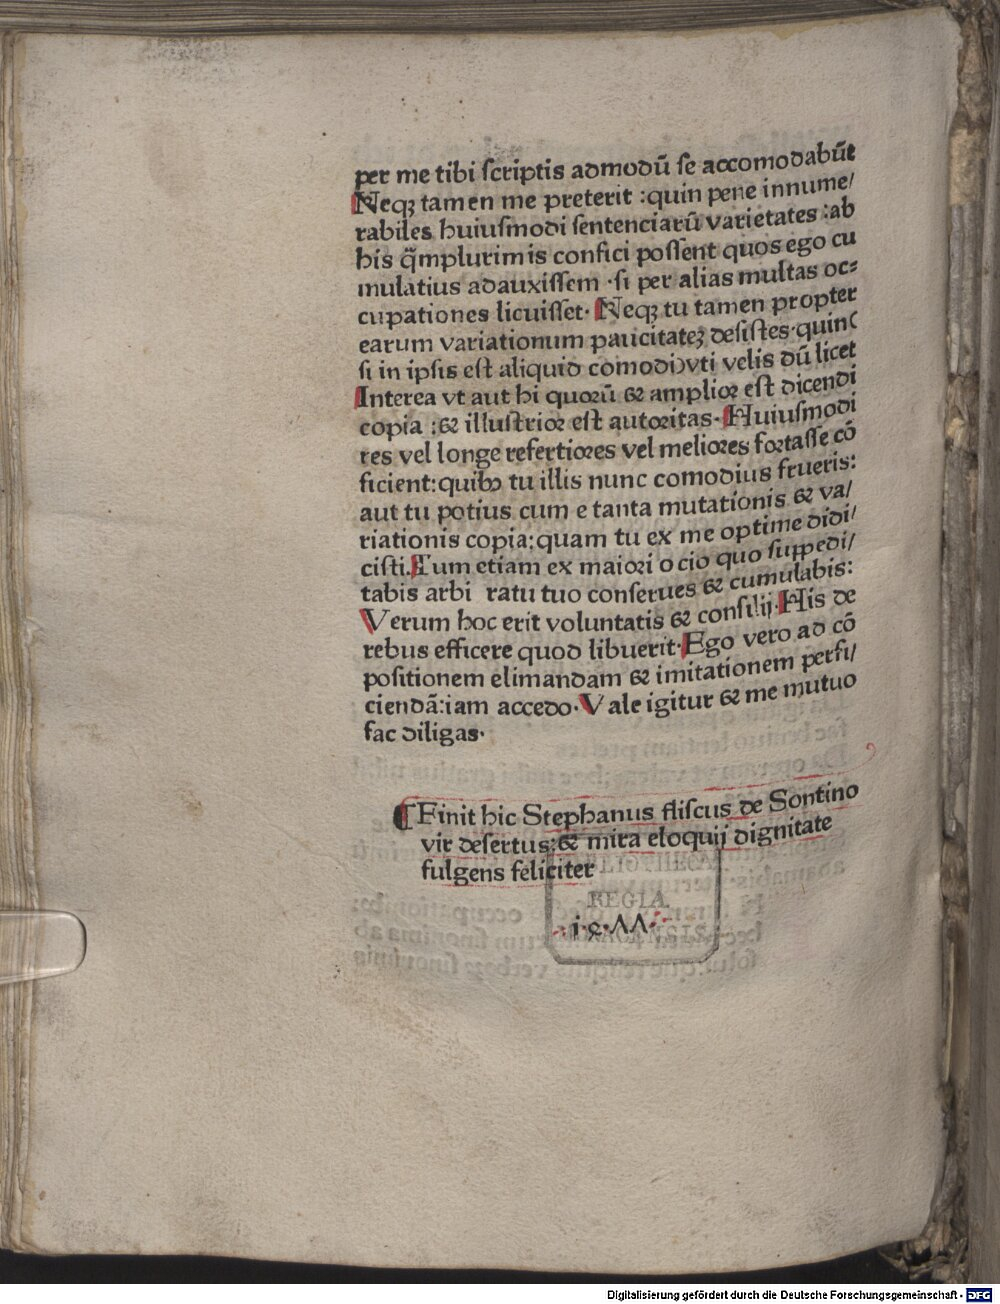 per me tibi scriptis admodū se accomodabūt
Neqꝫ tamen me preterit :quin pene innume/
rabiles huiusmodi sentenciarū varietates :ab
his q̄mplurimis confici possent quos ego cu
mulatius adauxissem ·si per alias multas oc⸗
cupationes licuisset· Neqꝫ tu tamen propter
earum variationum paucitateꝫ desistes·quin(
si in ipsis est aliquid comodi)vti velis dū licet
Interea vt aut hi quorū & amplior est dicendi
copia :& illustrior est autoritas· Huiusmodi
res vel longe refertiores vel meliores fortasse cō
ficient:quibꝫ tu illis nunc comodius frueris:
aut tu potius cum e tanta mutationis & va/
riationis copia:quam tu ex me optime didi/
cisti.Tum etiam ex maiori ocio quo suppedi/
tabis arbi ratu tuo conserues & cumulabis:
Verum hoc erit voluntatis & consilij His de
rebus efficere quod libuerit·Ego vero ad cō
positionem elimandam & imitationem perfi/
ciendā:iam accedo·Vale igitur & me mutuo
fac diligas·
¶Finit hic Stephanus fliscus de Sontino
vir desertus:& mira eloquij dignitate
fulgens feliciter
BIBLIOTHECA
REGIA.
MONACENSIS.
Digitalisierung gefördert durch die Deutsche Forschungsgemeinschaft - DFG